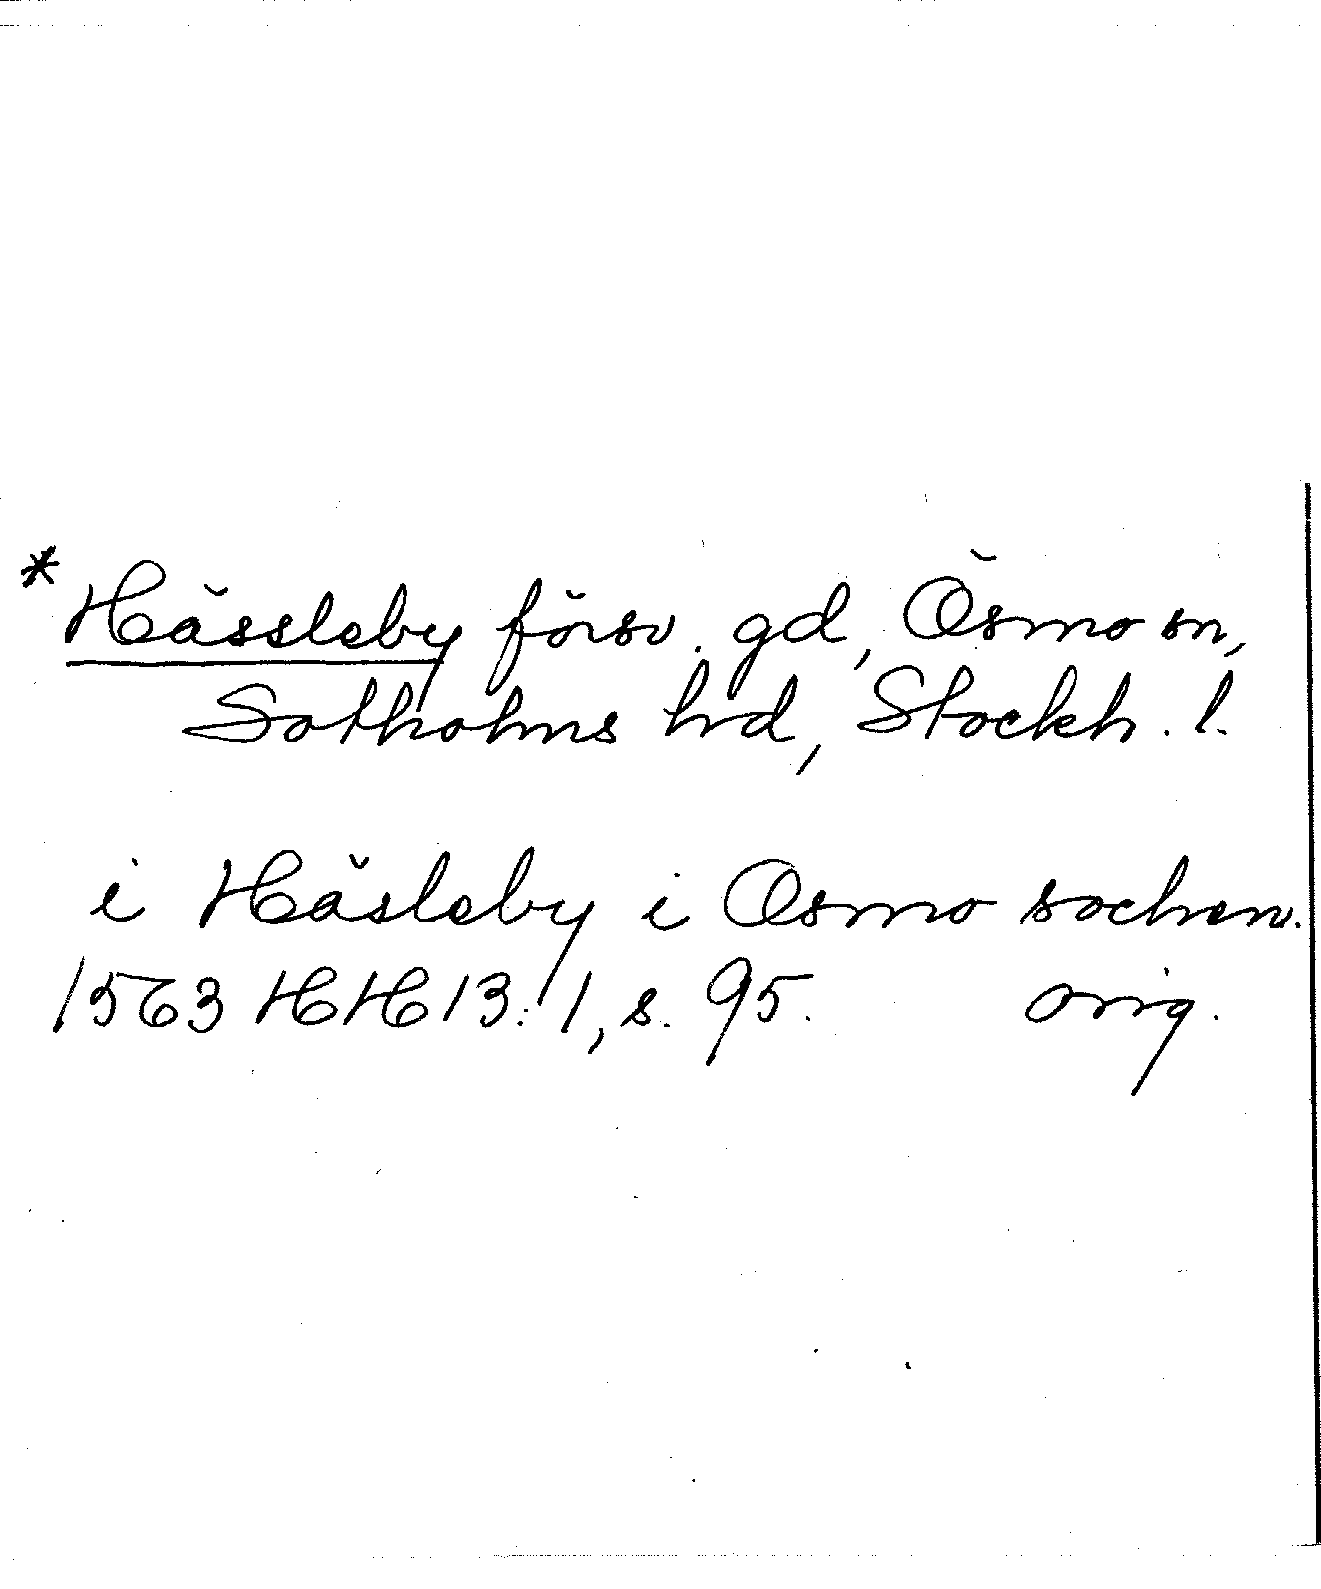 * Hässleby försv. gd, Ösmo sn,
Sotholms hd, Stockh. l.
i Häsleby i Osmo sochen.
1563 HH 13:1, s. 95. orig.